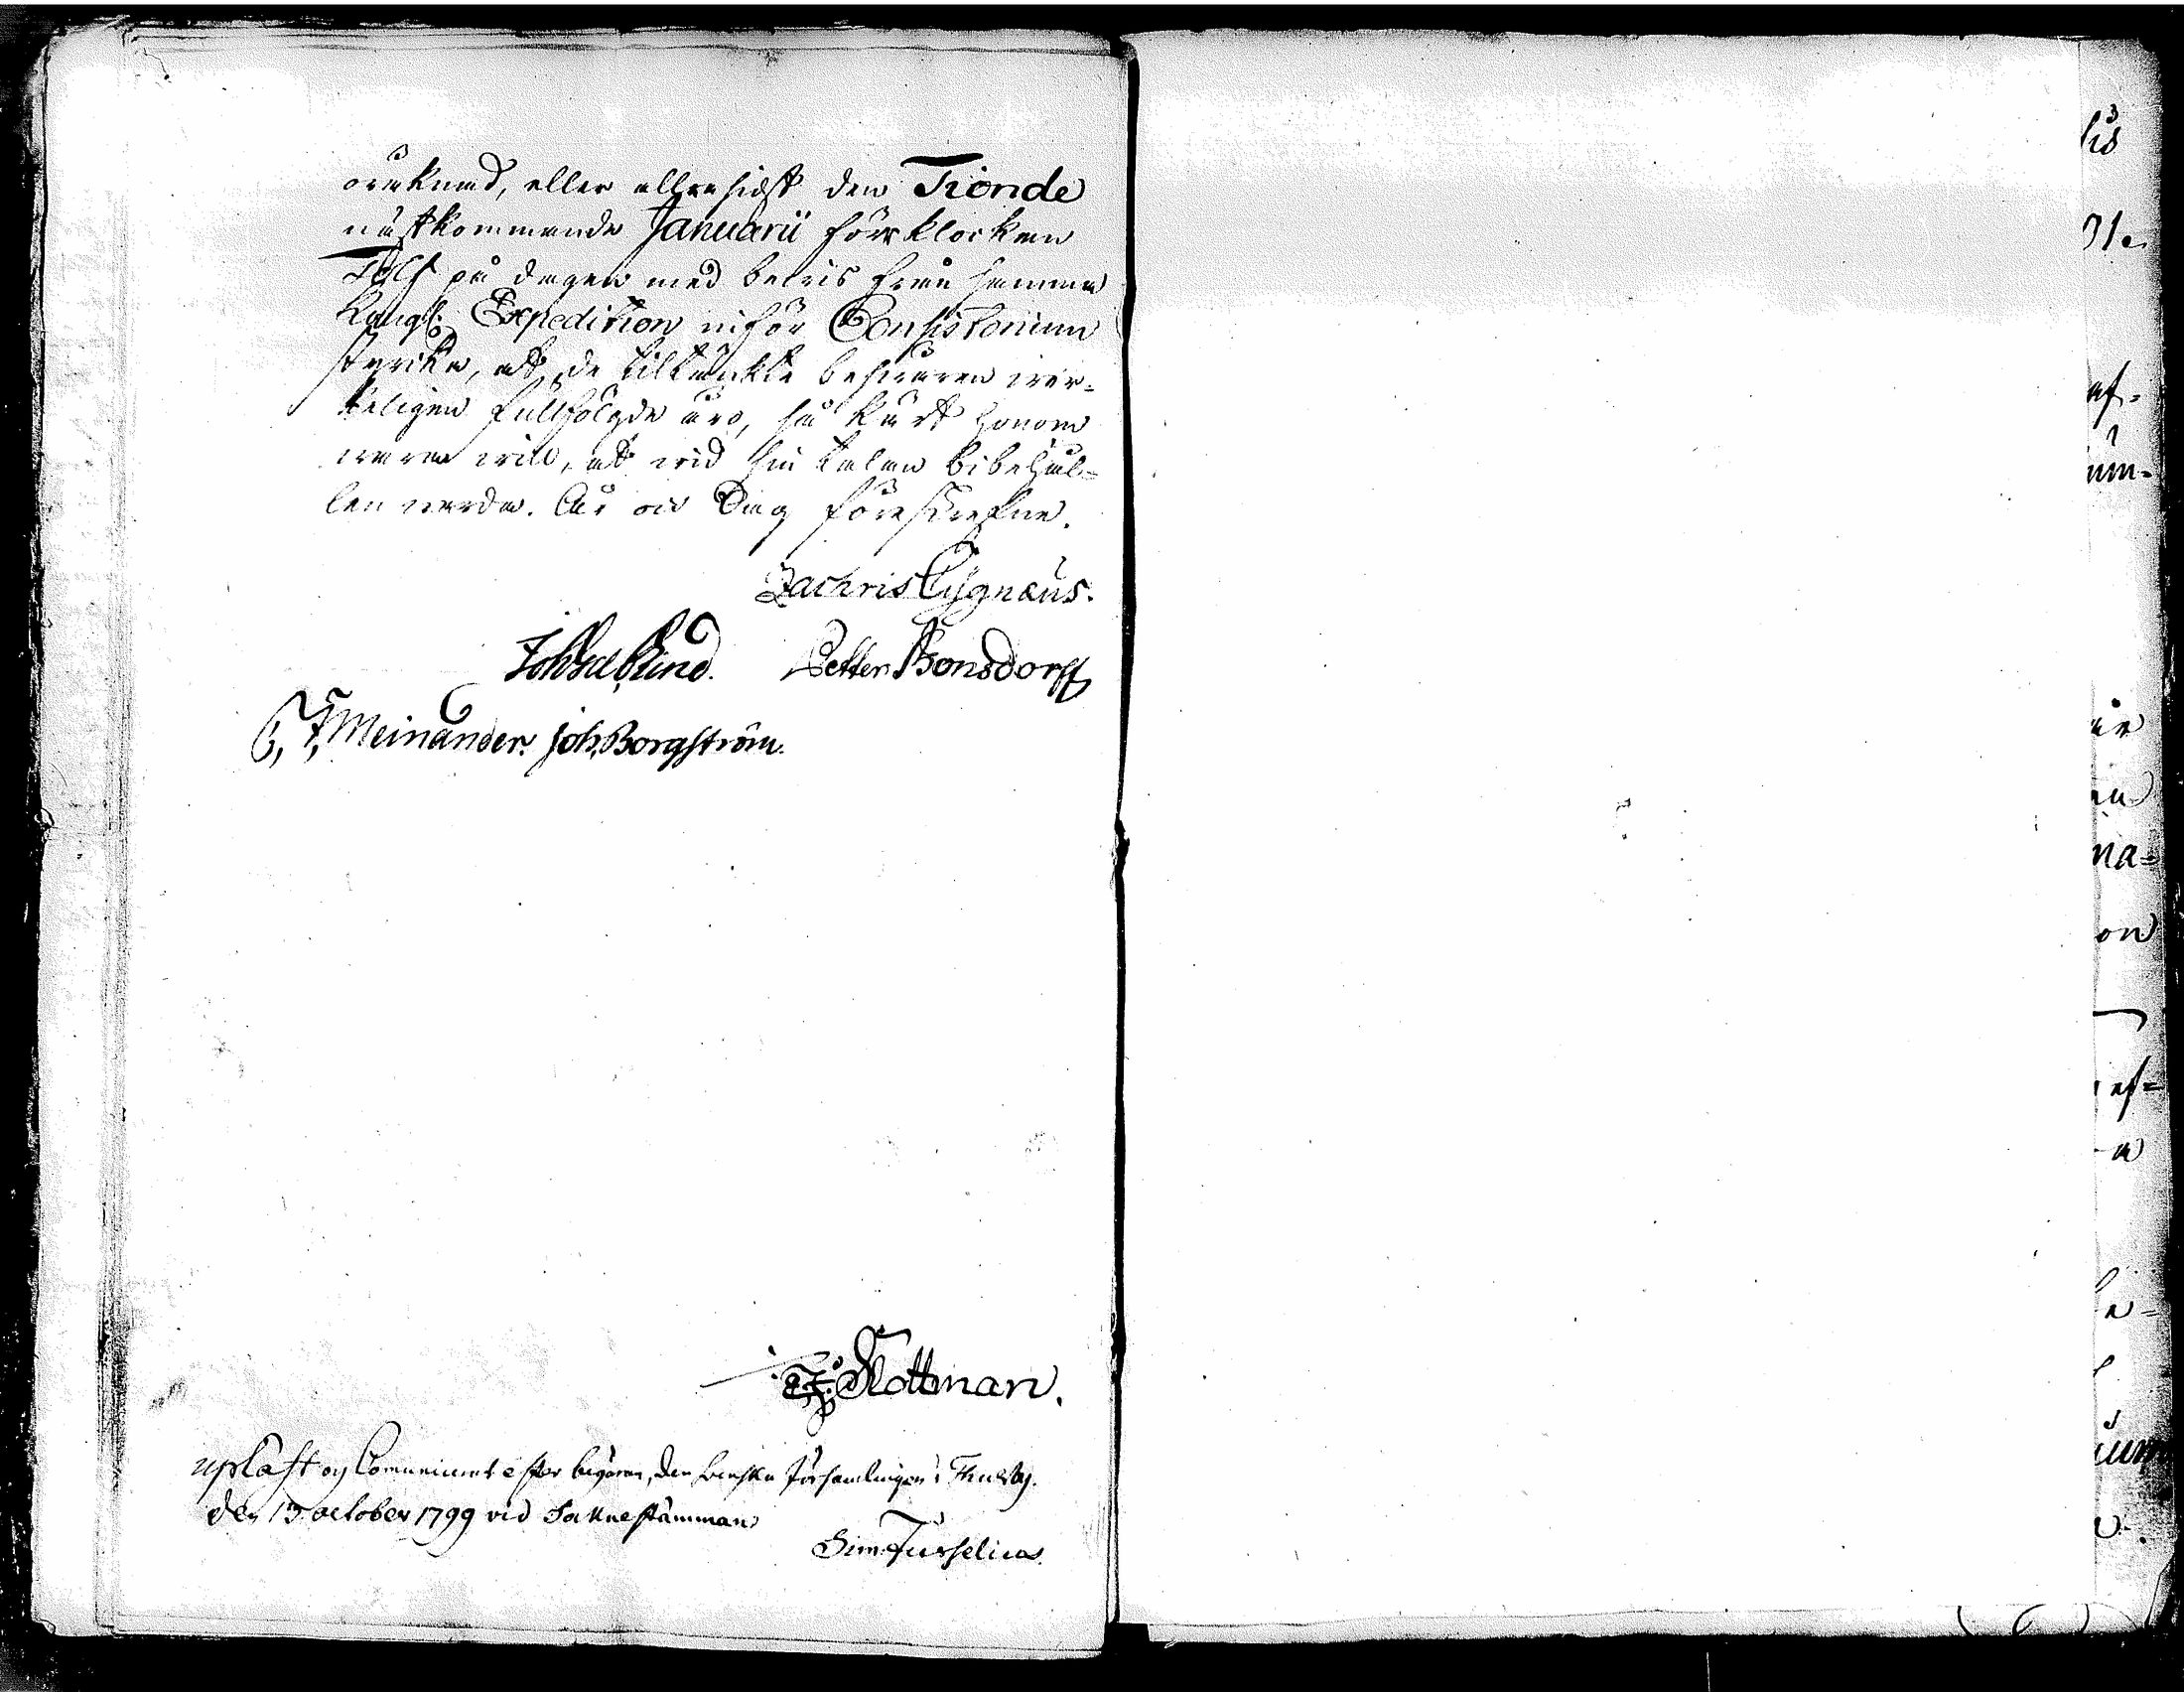 oräknad, eller allrasidst den Tionde
nästkommande Januarii före klockan
Tolf på dagen med bevis från samma
Kongl: Expedition inför Consistorium
styrka, at de tiltänkte besvären wer-
keligen fullfölgde äro, så kärt honom
wara will, at wid sin talan bibehål-
len warda. År och Dag föreskrefne.
Zachris Cygnæus.
Petter Bonsdorff
G, J, Meinander. Joh, Borgström.
Kottman.
Upläst och Communicerat efter begäran, den svenska församlingen i Thusby.
den 13 october 1799 vid Soknestämman
Sim: Furselius.
his
31.
af-
um-
är
na-
on
af-
a